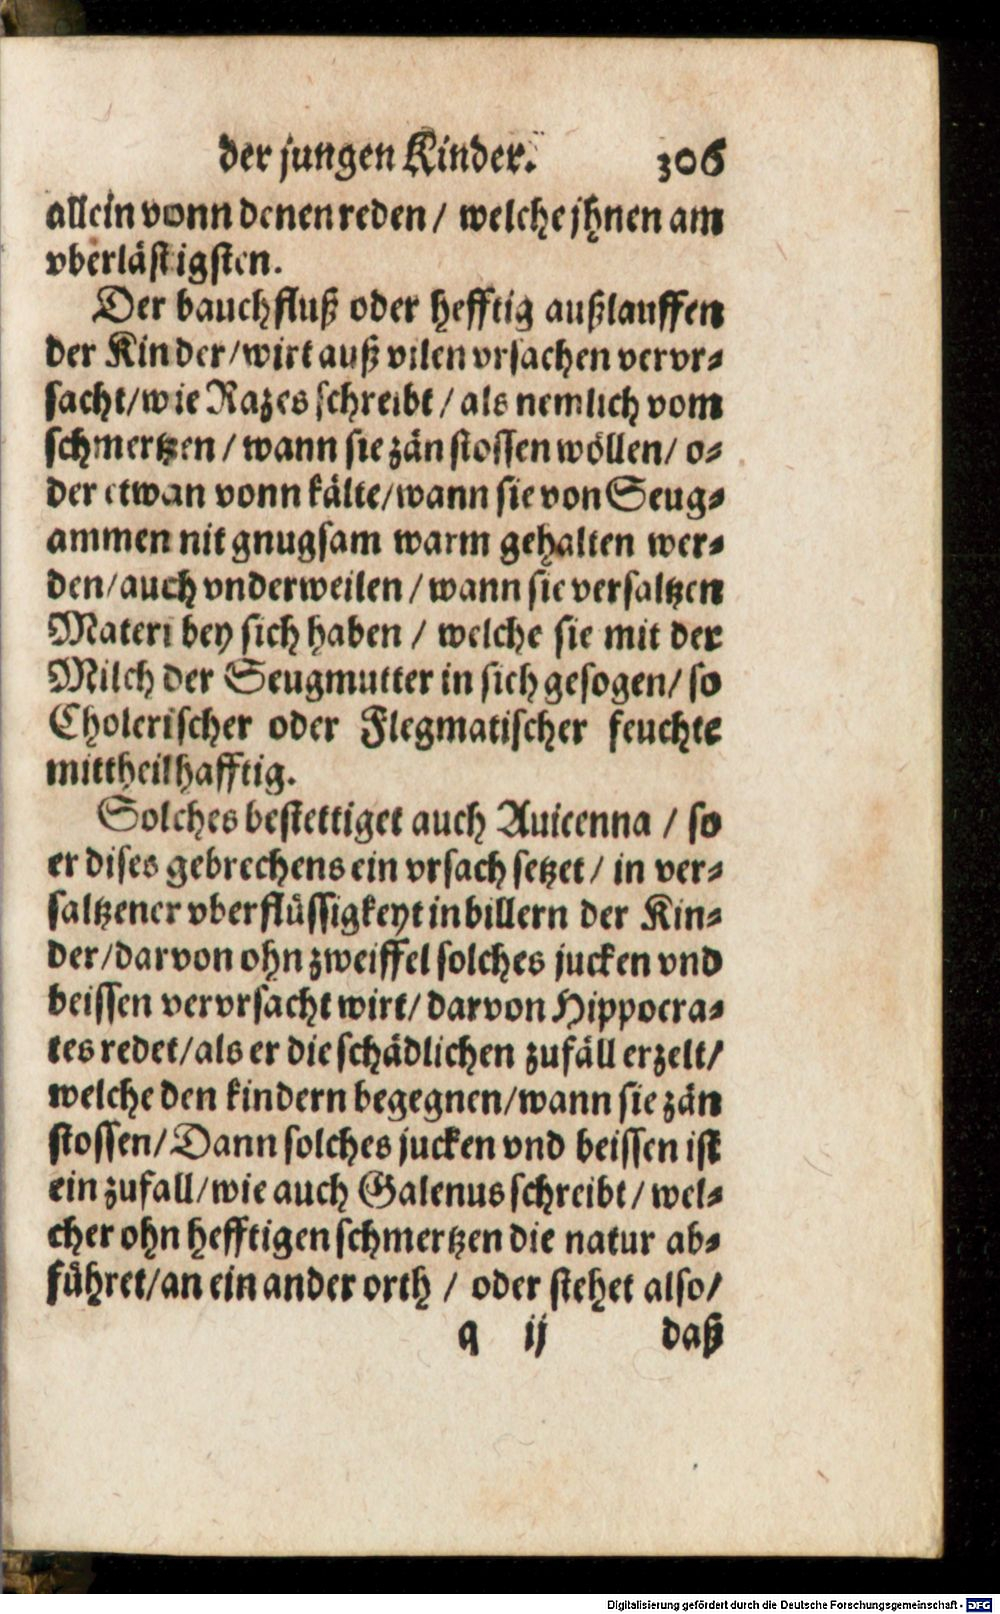 der jungen Kinder. 306
allein vonn denen reden / welche jhnen am
vberlästigsten.
Der bauchfluß oder hefftig außlauffen
der Kinder / wirt auß vilen vrsachen vervr⸗
sacht / wie Razes schreibt / als nemlich vom
schmertzen / wann sie zän stossen wöllen / o⸗
der etwan vonn kälte / wann sie von Seug⸗
ammen nit gnugsam warm gehalten wer⸗
den / auch vnderweilen / wann sie versaltzen
Materi bey sich haben / welche sie mit der
Milch der Seugmutter in sich gesogen / so
Cholerischer oder Flegmatischer feuchte
mittheilhafftig.
Solches bestettiget auch Auicenna / so
er dises gebrechens ein vrsach setzet / in ver⸗
saltzener vberflüssigkeyt in billern der Kin⸗
der / darvon ohn zweiffel solches jucken vnd
beissen vervrsacht wirt / darvon Hippocra⸗
tes redet / als er die schädlichen zufäll erzelt /
welche den kindern begegnen / wann sie zän
stossen / Dann solches jucken vnd beissen ist
ein zufall / wie auch Galenus schreibt / wel⸗
cher ohn hefftigen schmertzen die natur ab⸗
führet / an ein ander orth / oder stehet also /
q ij daß
Digitalisierung gefördert durch die Deutsche Forschungsgemeinschaft - DFG